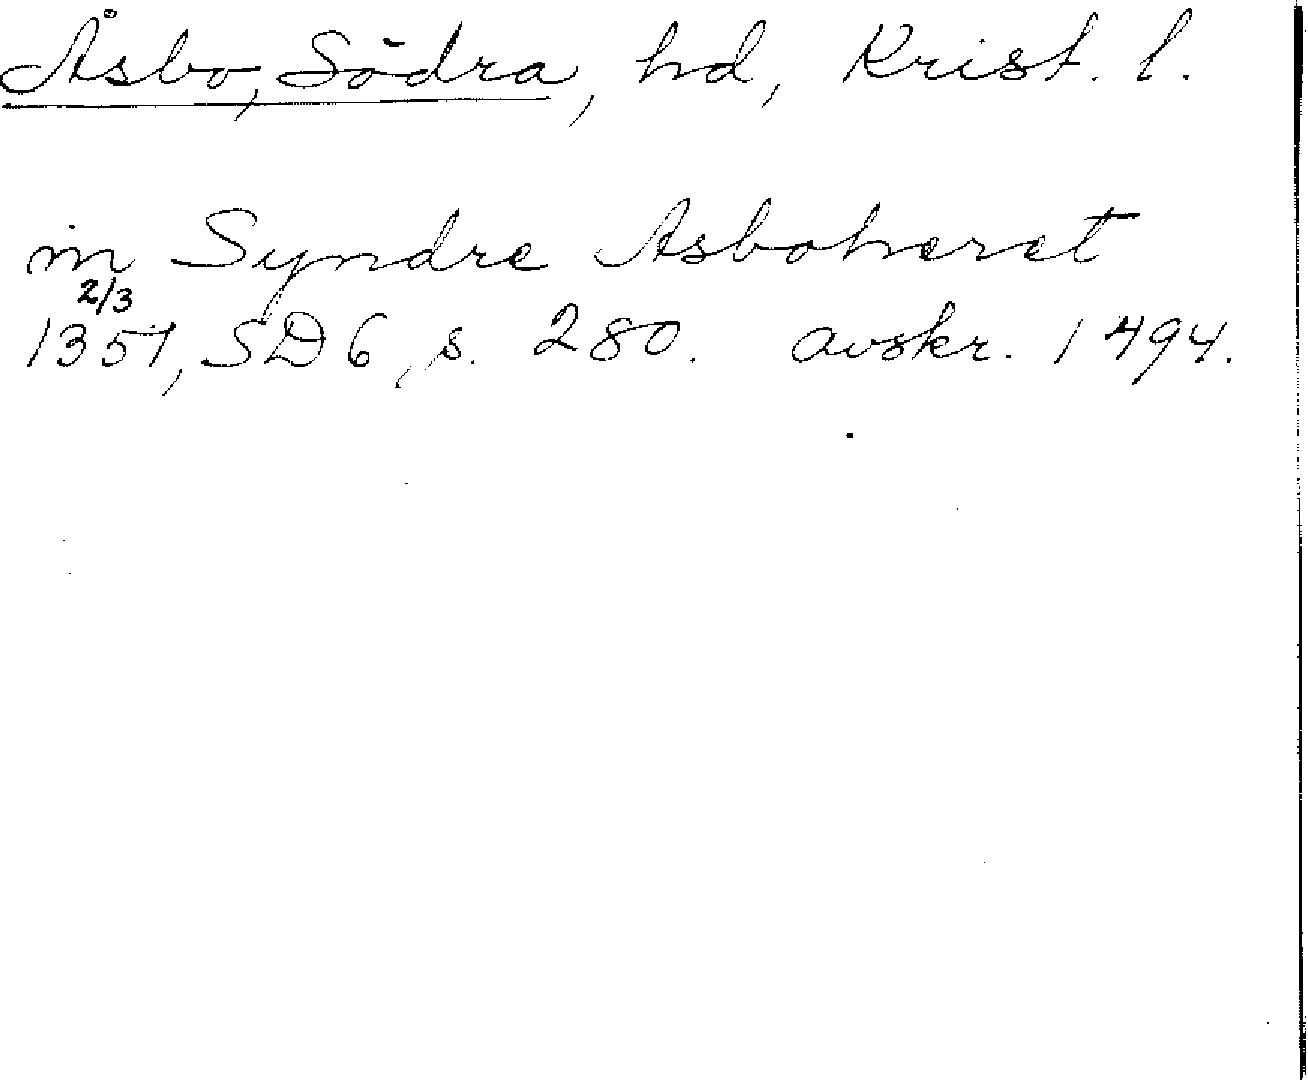 Åsbo, Södra, hd, Krist. l.
in Syndre Asboheret
2/3
1351, SD 6, s. 280. avskr. 1494.